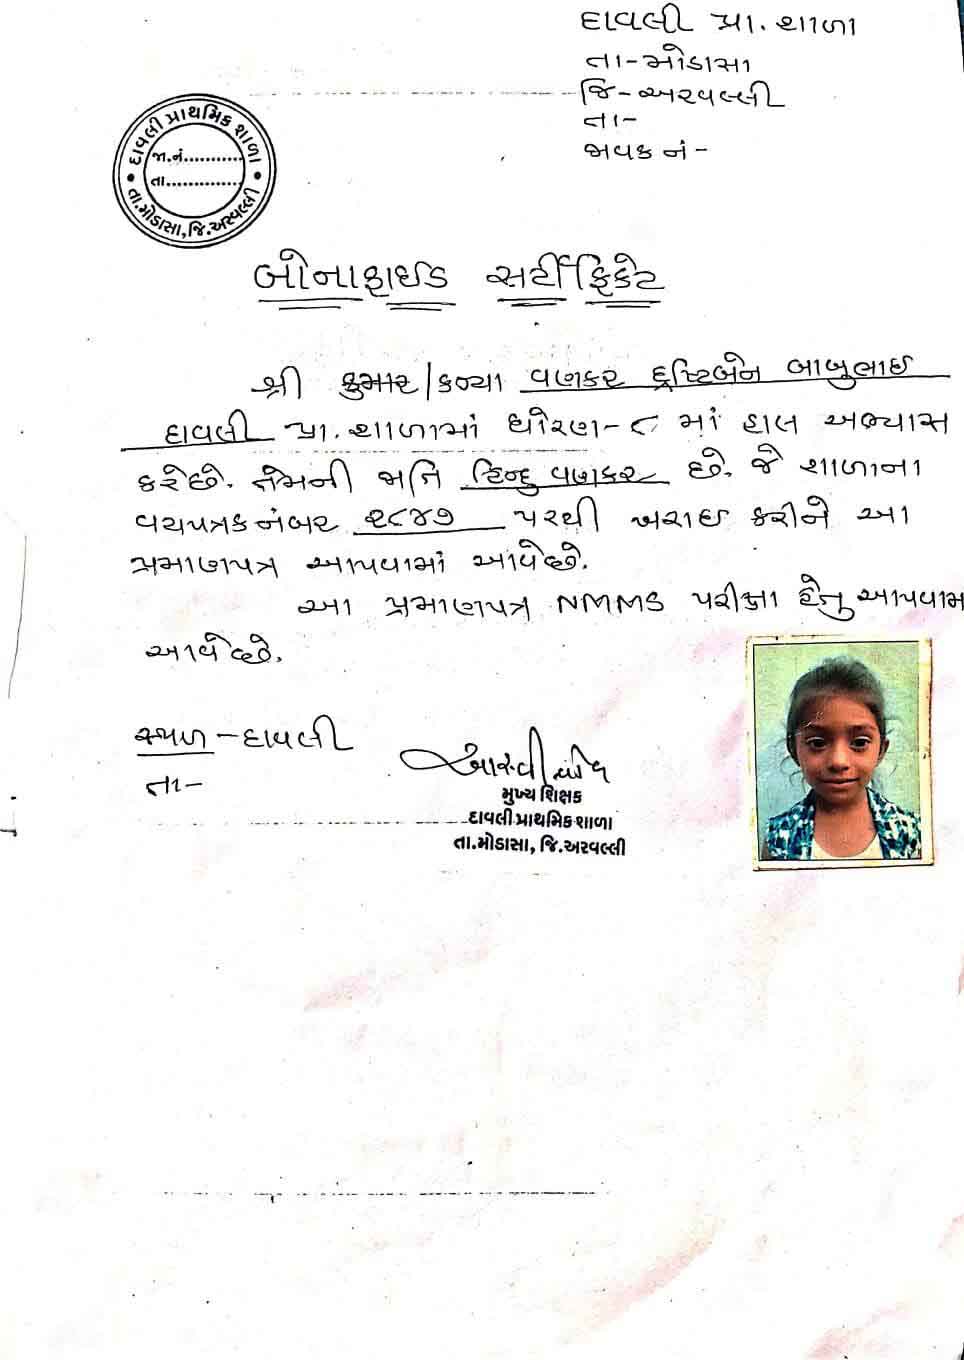 દાવલી પ્રા. શાળા
તા-મોડાસા
જિ-અરવલ્લી
તા-
જાવક નં -
દાવલી પ્રાથમિક શાળા
જા.નં............
તા...............
તા.મોડાસા, જિ.અરવલ્લી
બોનાફાઈડ સર્ટીફિકેટ
શ્રી કુમાર/કન્યા વણકર દ્રષ્ટિબેન બાબુલાઇ
દાવલી પ્રા. શાળામાં ધોરણ-૮ માં હાલ અભ્યાસ
કરેછે. તેમની જાતિ હિન્દુ વણકર છે. જે શાળાના
વયપત્રક નંબર ૨૮૪૭ પરથી ખરાઇ કરીને આ
પ્રમાણપત્ર આપવામાં આવેછે.
આ પ્રમાણપત્ર NMMS પરીક્ષા હેતુ આપવામ
આવેછે.
સ્થળ - દાવલી
તા-
મુખ્ય શિક્ષક
દાવલી પ્રાથમિક શાળા
તા.મોડાસા, જિ.અરવલ્લી